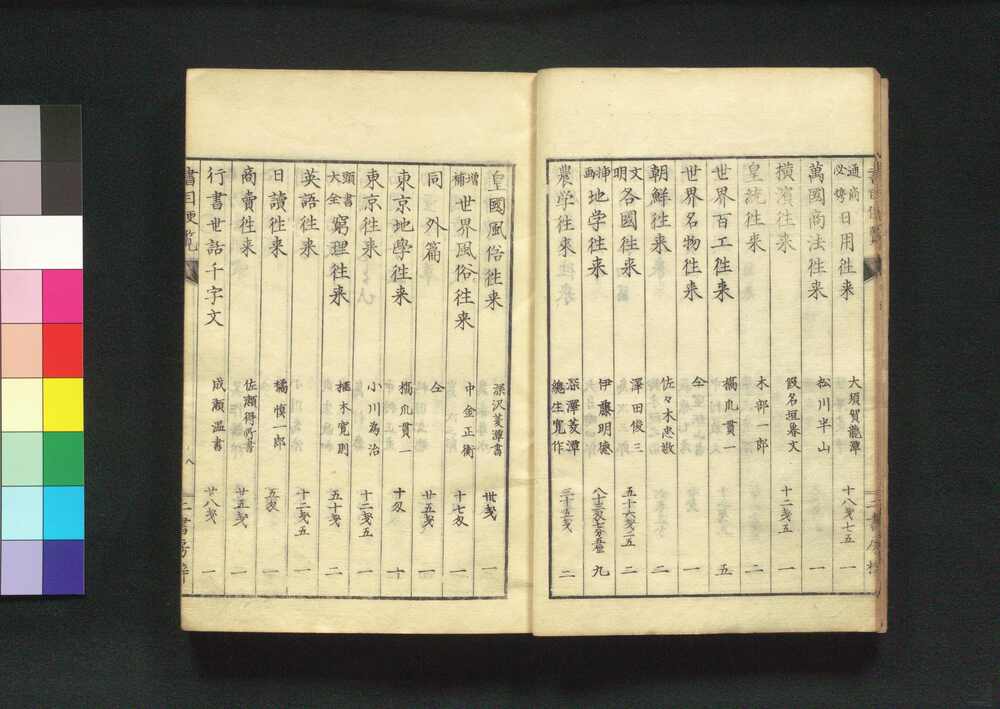 通商必携 日用往来 大須賀龍潭 十八戔七五 一
萬國商法往来 松川半山 一
横濱往来 假名垣魯文 十二戔五 一
皇統往来 木部一郎 二
世界百工往来 橋爪貫一 五
世界名物往来 仝 一
朝鮮往来 佐々木忠敬 二
文明各國往来 澤田俊三 五十六戔二五 二
挿画 地学往来 伊藤明德 九
農学往来 深澤菱潭 總生寛作 三十五戔 二
皇國風俗往来 深沢菱潭書 卅戔 一
増補 世界風俗往来 中金正衡 十七戔 一
同 外篇 仝 廿五戔 一
東京地學往来 橋爪貫一 十戔
東京往来 小川為治 十二戔五 一
頭書大全 窮理往来 柾木寛則 五十戔 二
英語往来 十二戔五 一
日讀往来 橘慎一郎 五戔 一
商賣往来 佐瀬得所書 廿五戔 一
行書世話千字文 成瀬温書 廿八戔 一
書目便覧 八 二書房梓